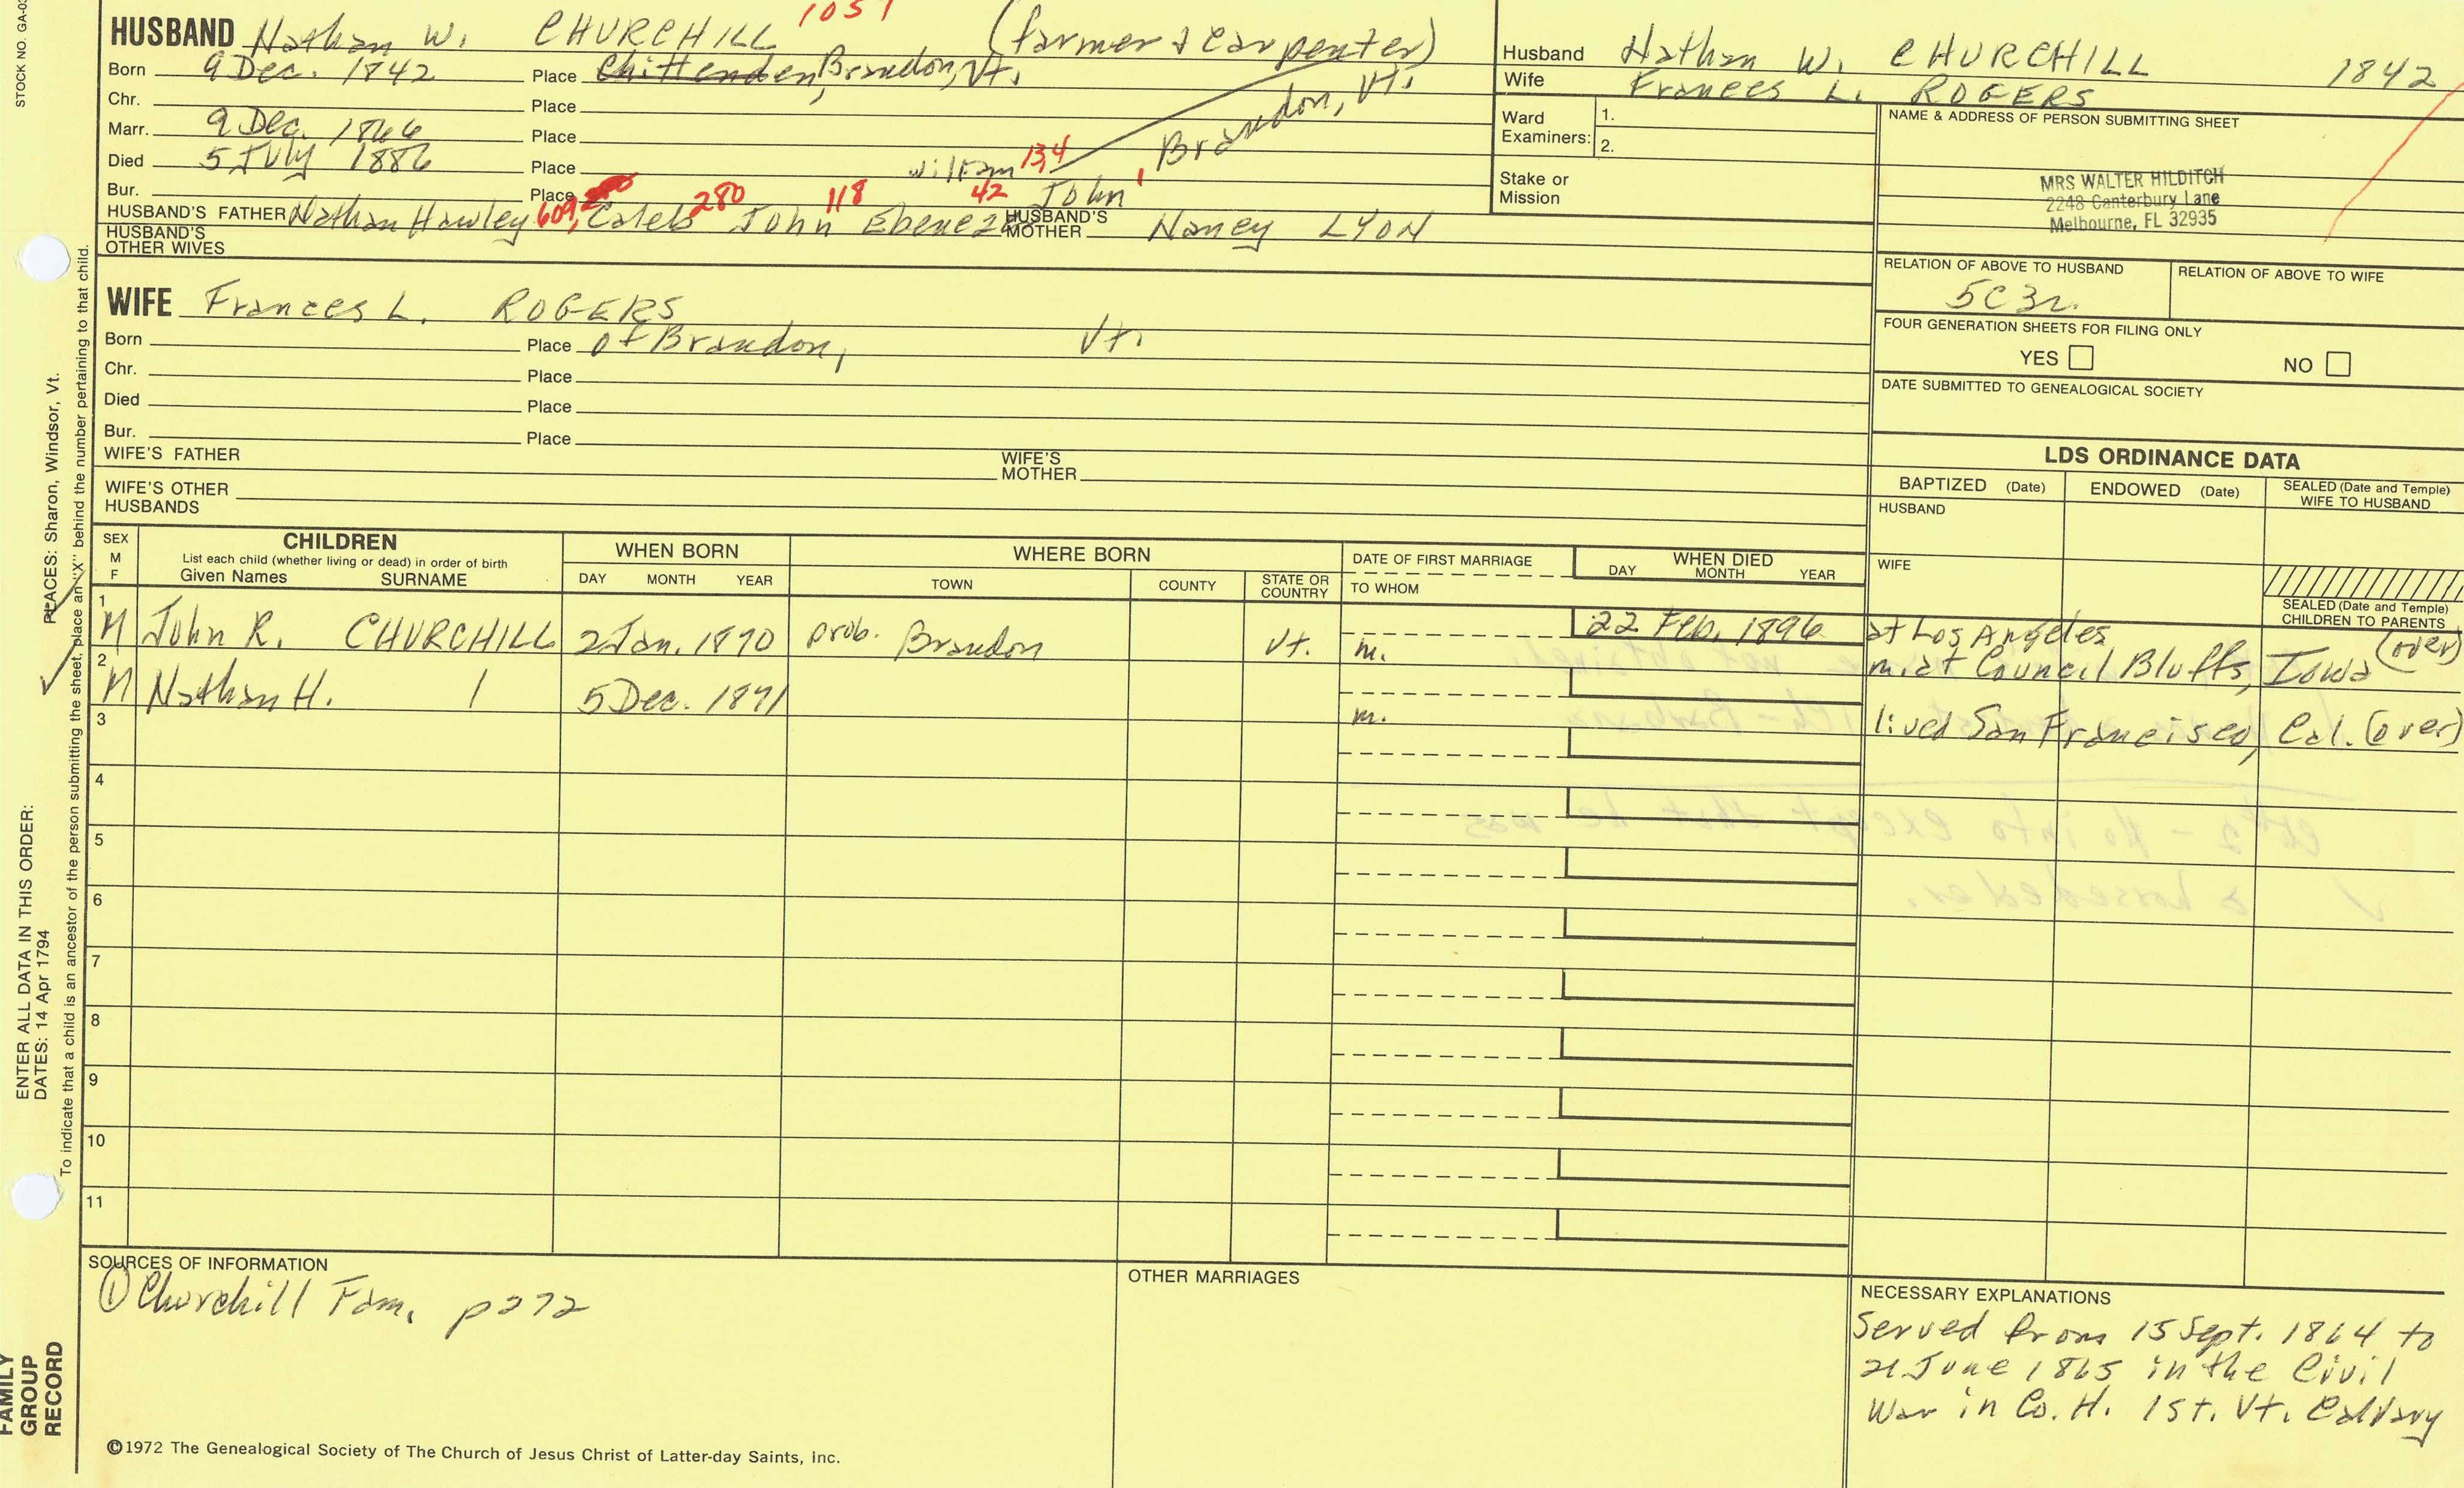 STOCK NO. GA-0
1051
HUSBAND Nathan W. CHURCHILL (farmer & carpenter)
Born 9 Dec. 1842 Place Chittenden, Brandon, Vt.
Chr. Place
Marr. 9 Dec. 1866 Place Brandon, Vt.
Died 5 July 1886 Place William 134
Bur. Place 280 118 42 John 1
HUSBAND'S FATHER Nathan Hawley 609, Caleb John Ebenezer HUSBAND'S MOTHER Nancy LYON
HUSBAND'S OTHER WIVES
Husband Nathan W. CHURCHILL 1842
Wife Frances L. ROGERS
Ward Examiners: 1.
2.
Stake or Mission
NAME & ADDRESS OF PERSON SUBMITTING SHEET
MRS WALTER HILDITCH
2248 Canterbury Lane
Melbourne, FL 32935
RELATION OF ABOVE TO HUSBAND RELATION OF ABOVE TO WIFE
5C3r.
FOUR GENERATION SHEETS FOR FILING ONLY
YES NO
DATE SUBMITTED TO GENEALOGICAL SOCIETY
WIFE Frances L. ROGERS
Born Place of Brandon, Vt.
Chr. Place
Died Place
Bur. Place
WIFE'S FATHER WIFE'S MOTHER
WIFE'S OTHER HUSBANDS
LDS ORDINANCE DATA
BAPTIZED (Date) ENDOWED (Date) SEALED (Date and Temple) WIFE TO HUSBAND
HUSBAND
WIFE
SEALED (Date and Temple) CHILDREN TO PARENTS
SEX M F
CHILDREN
List each child (whether living or dead) in order of birth
Given Names SURNAME
WHEN BORN
DAY MONTH YEAR
WHERE BORN
TOWN COUNTY STATE OR COUNTRY
DATE OF FIRST MARRIAGE
TO WHOM
WHEN DIED
DAY MONTH YEAR
1 M John R. CHURCHILL 2 Jan. 1870 prob. Brandon Vt. m. 22 Feb. 1896 at Los Angeles
m. at Council Bluffs, Iowa (over)
2 M Nathan H. 5 Dec. 1871 m. lived San Francisco, Cal. (over)
3
4
5
6
7
8
9
10
11
SOURCES OF INFORMATION
① Churchill Fam. p272
OTHER MARRIAGES
NECESSARY EXPLANATIONS
Served from 15 Sept. 1864 to
21 June 1865 in the Civil
War in Co. H. 1st. Vt. Calvary
©1972 The Genealogical Society of The Church of Jesus Christ of Latter-day Saints, Inc.
PLACES: Sharon, Windsor, Vt.
ENTER ALL DATA IN THIS ORDER:
DATES: 14 Apr 1794
To indicate that a child is an ancestor of the person submitting the sheet, place an "X" behind the number pertaining to that child.
FAMILY
GROUP
RECORD